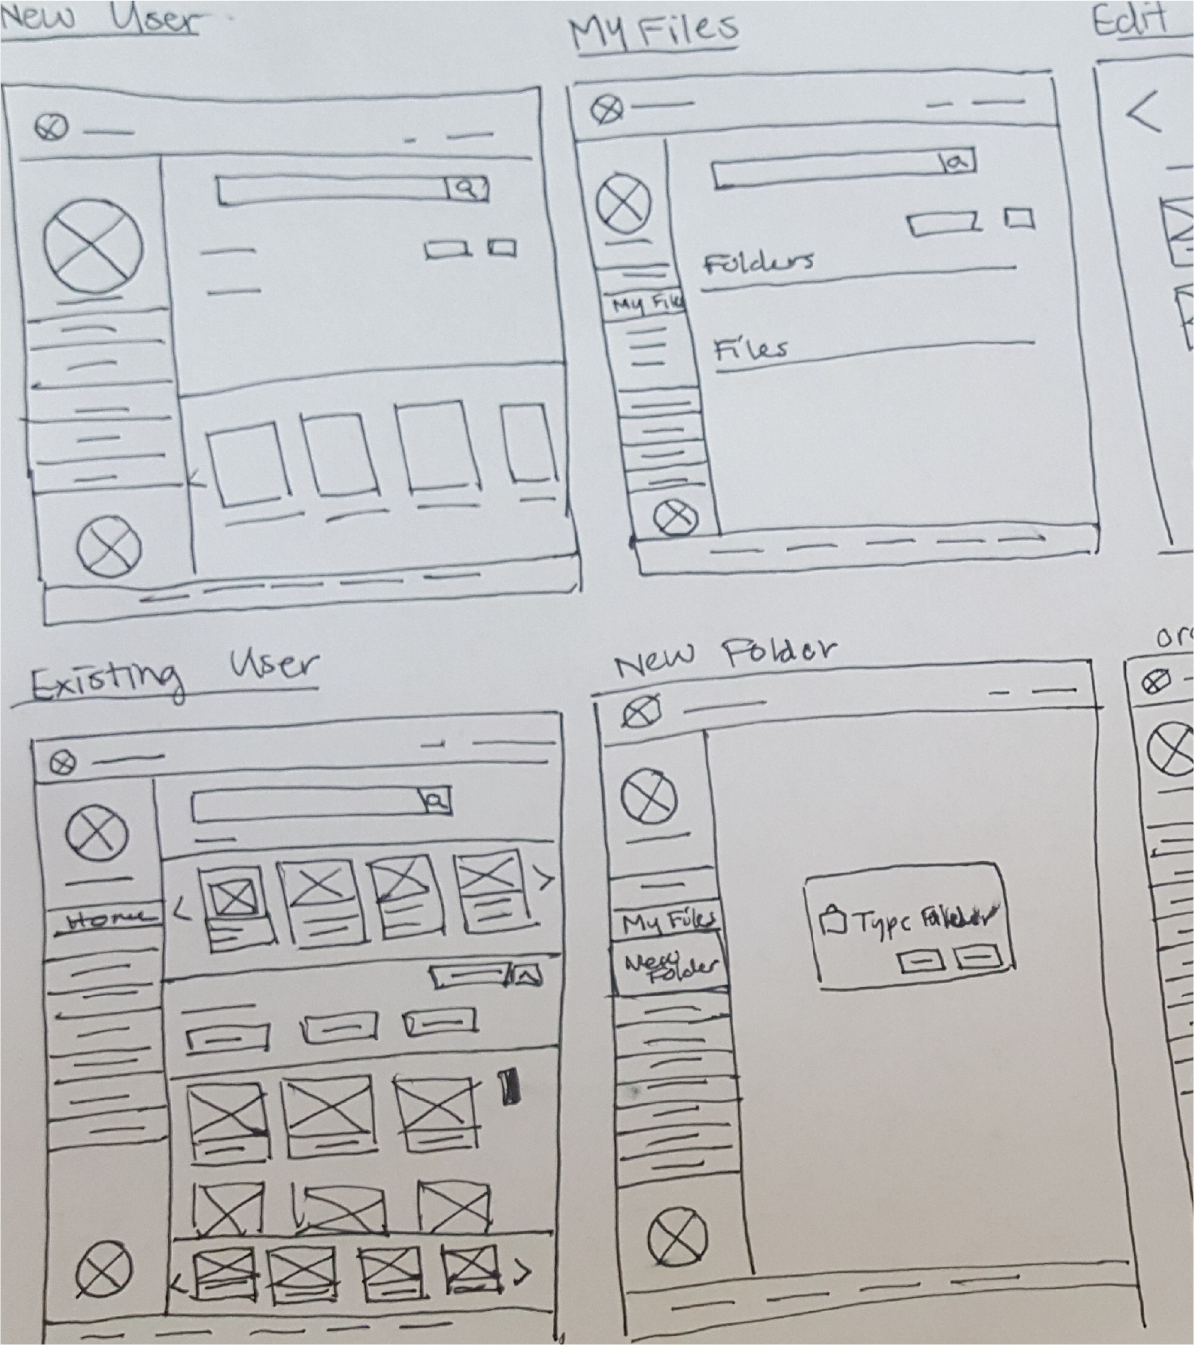 New User
My Files
Edit
Folders
My File
Files
Existing User
New Folder
Home
My Files
New
Folder
Type